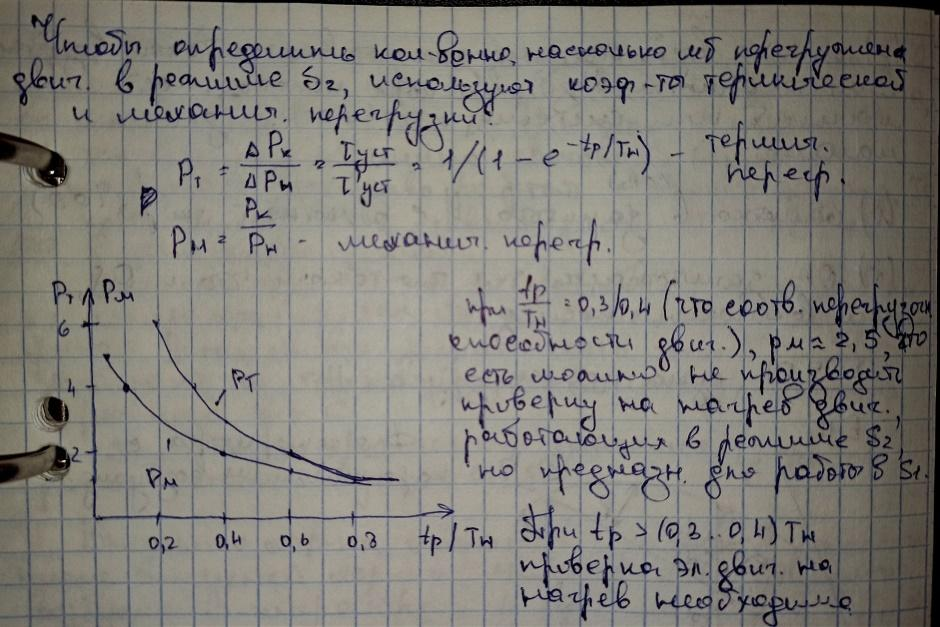 Чтобы определить кол-венно, насколько мб перегружена
двиг. в режиме S2, используют коэф-ты термической
и механич. перегрузки:
Pт = ΔPк/ΔPн = τуст/τ'уст = 1/(1 - e^(-tр/Tн)) - термич.
перегр.
Pм = Pк/Pн - механич. перегр.
Pт Pм
6
4
2
PT
Pм
0,2 0,4 0,6 0,8 tр/Tн
при tр/Tн = 0,3/0,4 (что соотв. перегрузочн
способности двиг.), pм ≈ 2,5, что
есть можно не производить
проверку на нагрев двиг.,
работающих в режиме S2,
но предназн. для работы в S1.
При tр > (0,3..0,4) Tн
проверка эл. двиг. на
нагрев необходима